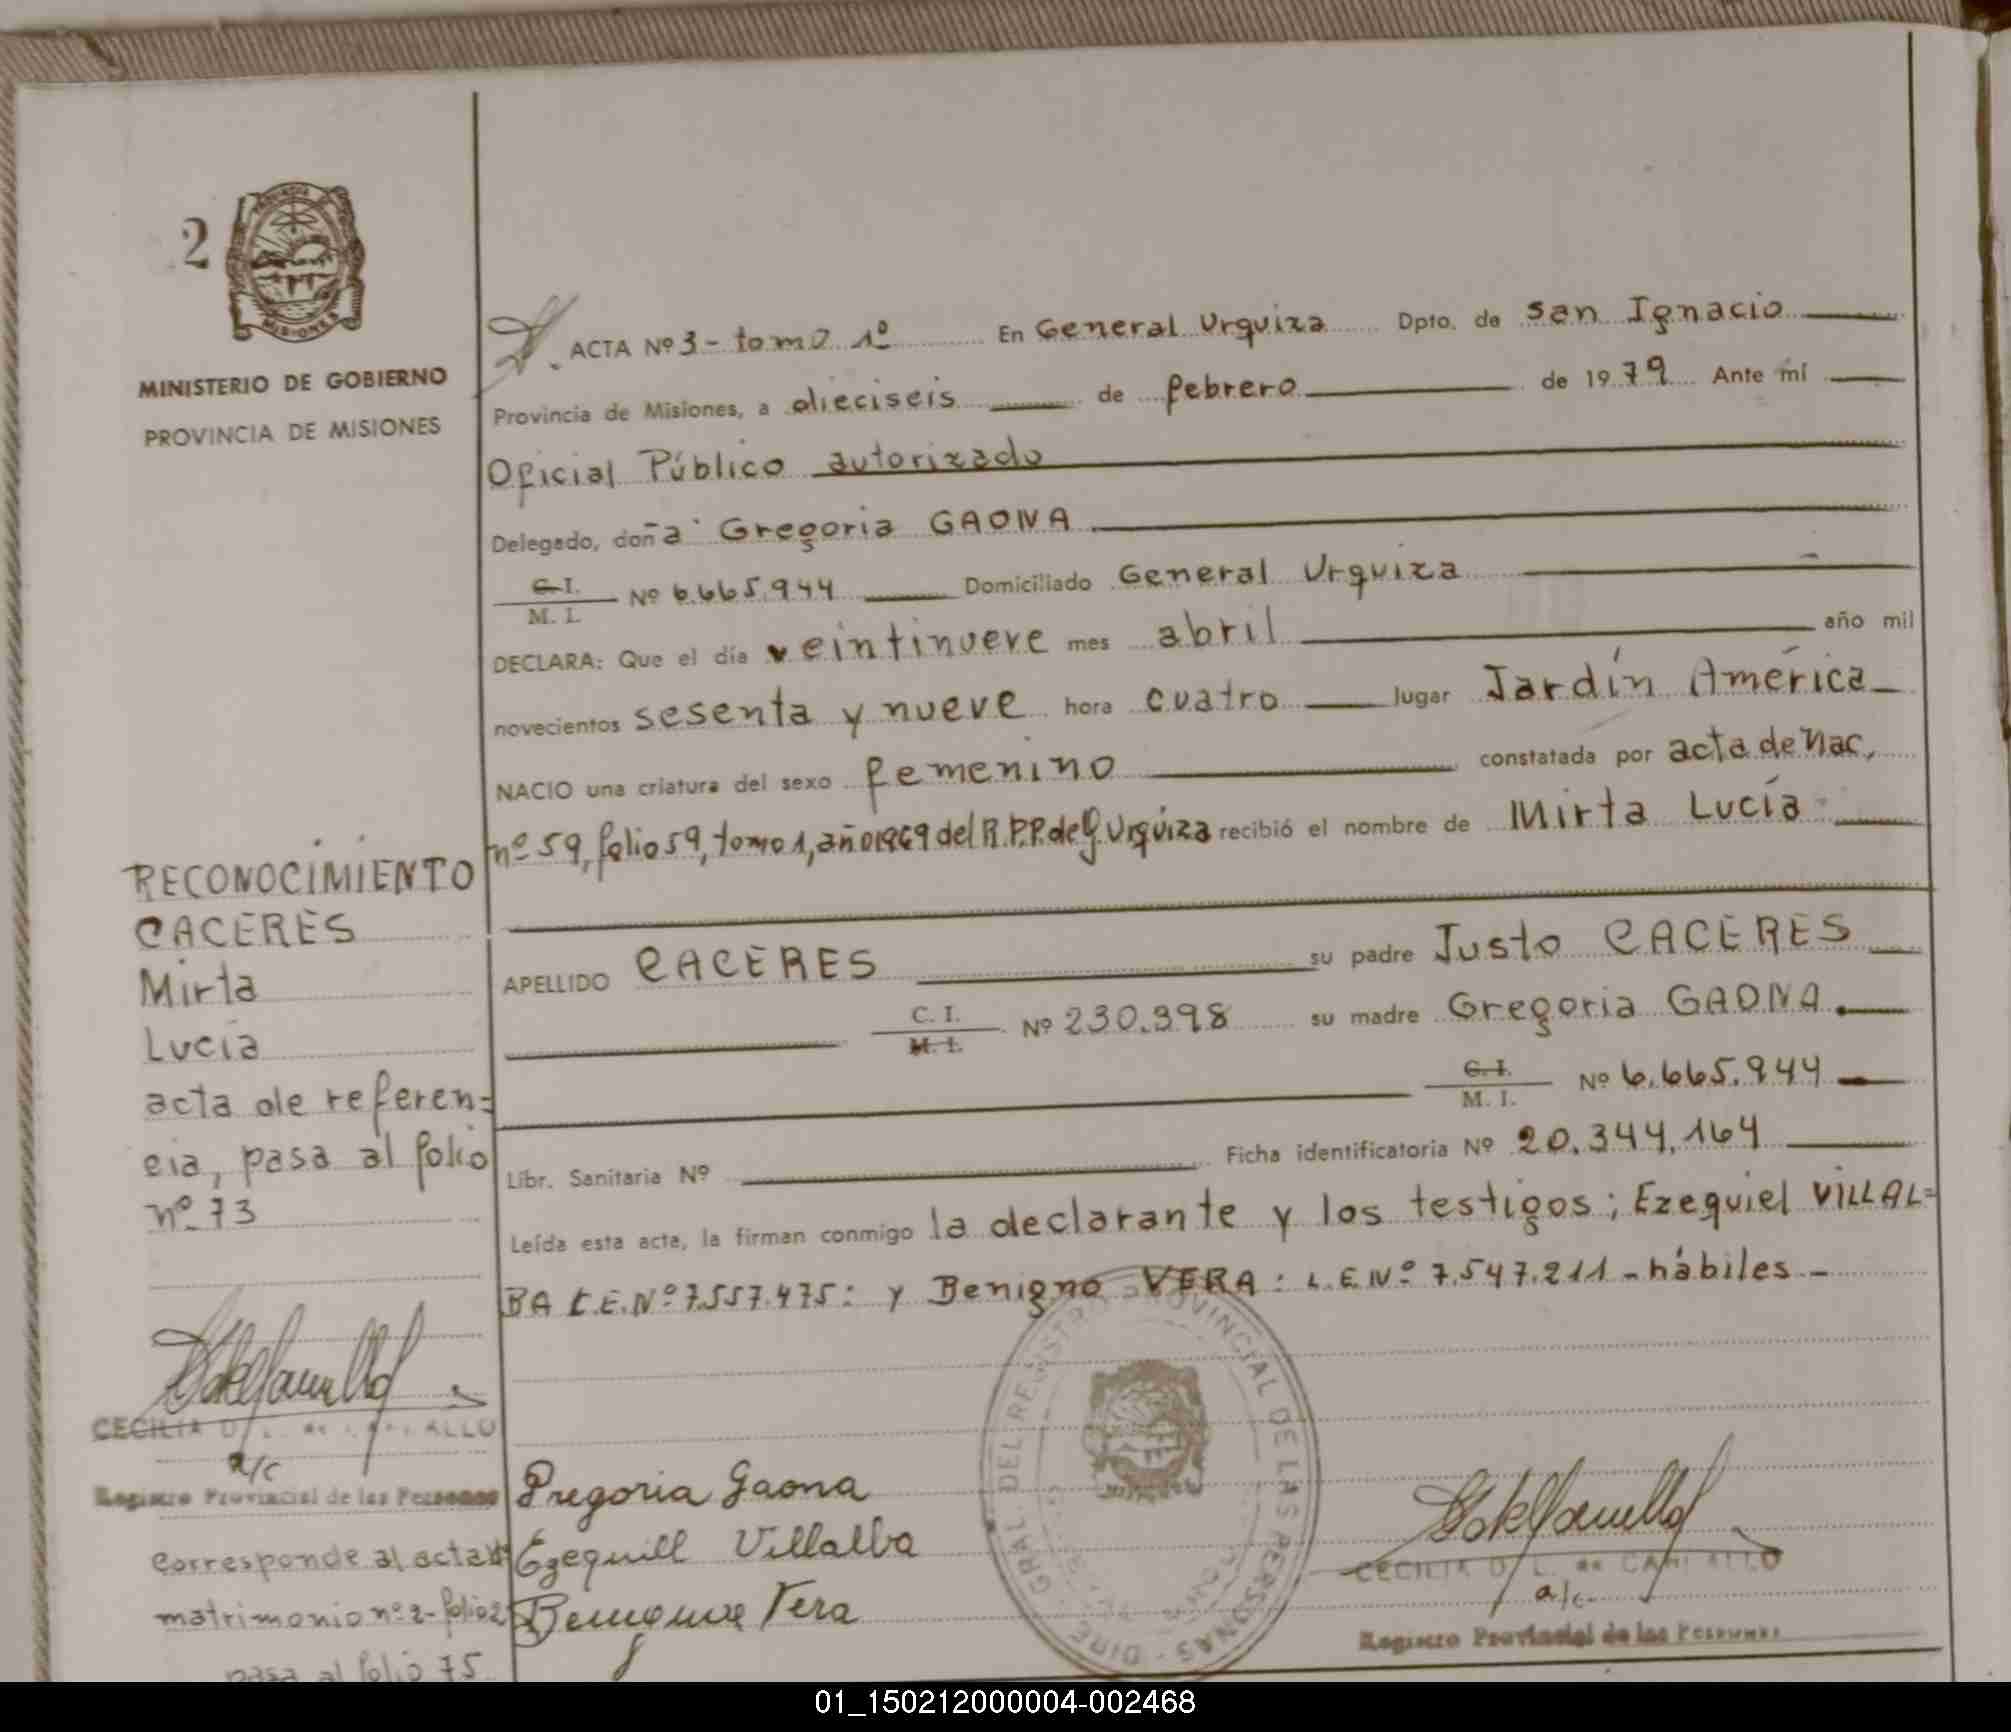 2
MISIONES
MINISTERIO DE GOBIERNO
PROVINCIA DE MISIONES
ACTA Nº 3 - tomo 1º En General Urquiza Dpto. de San Ignacio
Provincia de Misiones, a dieciseis de febrero de 1979 Ante mí
Oficial Público autorizado
Delegado, doña Gregoria GAONA
C.I. / M. I. Nº 6.665.944 Domiciliado General Urquiza
DECLARA: Que el día veintinueve mes abril año mil
novecientos sesenta y nueve hora cuatro lugar Jardín América
NACIO una criatura del sexo femenino constatada por acta de nac,
nº 59, folio 59, tomo 1, año 1969 del R.P.P. de G. Urquiza recibió el nombre de Mirta Lucía
APELLIDO CACERES su padre Justo CACERES
C. I. / M. I. Nº 230.398 su madre Gregoria GAONA.
C. I. / M. I. Nº 6.665.944
Libr. Sanitaria Nº Ficha identificatoria Nº 20.344.164
Leída esta acta, la firman conmigo la declarante y los testigos; Ezequiel VILLAL=
BA L.E.Nº 7.557.475: y Benigno VERA: L.E Nº 7.547.211 - hábiles -
RECONOCIMIENTO
CACERES
Mirta
Lucía
acta de referen=
cia, pasa al folio
nº 73
CECILIA D. L. de
a/c
Registro Provincial de las Personas
corresponde al acta
matrimonio nº 2 - folio 2
pasa al folio 75
Gregoria Gaona
Ezequiel Villalba
Vera
DEL REGISTRO PROVINCIAL DE LAS PERSONAS
CECILIA D. L. de
a/c
Registro Provincial de las Personas
01_150212000004-002468